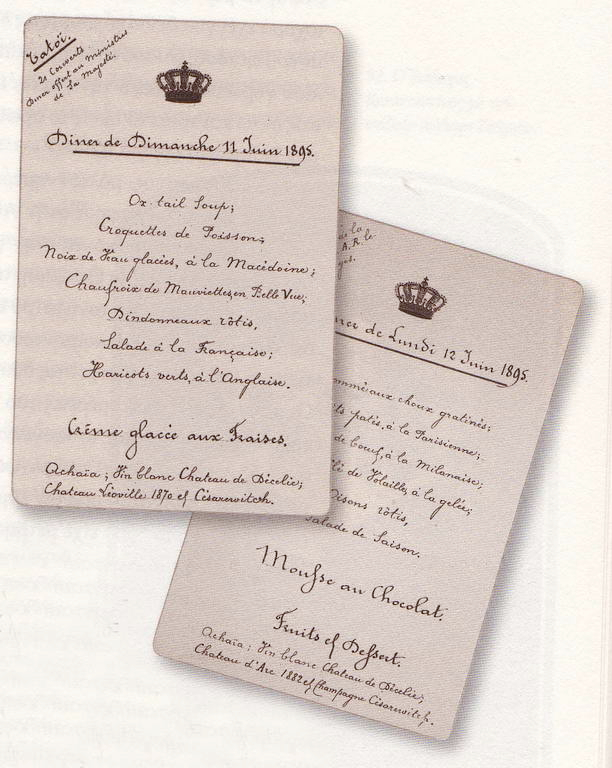 Tatoï.
21 Couverts
Diner offert au Ministres
de Sa Majesté.
Diner de Dimanche 11 Juin 1895.
Ox-tail Soup;
Croquettes de Poisson;
Noix de Veau glacées, à la Macédoine;
Chaufroix de Mauviettes, en Belle Vue;
Dindonneaux rôtis,
Salade à la Française;
Haricots verts, à l'Anglaise.
Crême glacée aux Fraises.
Achaïa; Vin blanc Chateau de Décélie;
Chateau Léoville 1870 et Césarewitch.
de la
A. R. le
ges.
ner de Lundi 12 Juin 1895.
ommé aux choux gratinés;
ts patés, à la Parisienne;
de bœuf, à la Milanaise;
lé de Volaille, à la gelée;
Oisons rôtis,
Salade de Saison.
Mousse au Chocolat.
Fruits et Dessert.
Achaïa; Vin blanc Chateau de Décélie;
Chateau d'Arc 1882 et Champagne Césarewitch.